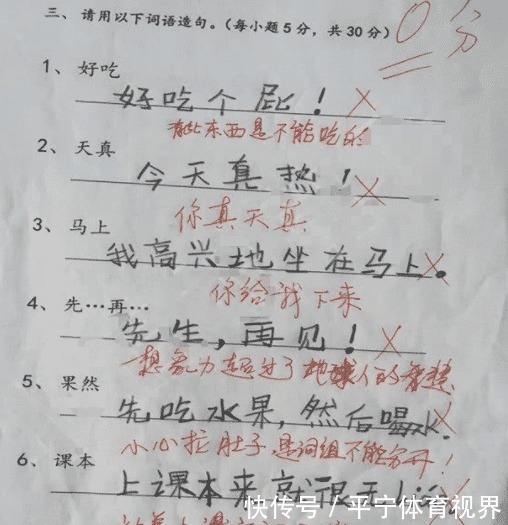 三、请用以下词语造句。(每小题5分，共30分)
0分
1、好吃
好吃个屁！
有些东西是不能吃的
2、天真
今天真热！
你真天真
3、马上
我高兴地坐在马上。
你给我下来
4、先…再…
先生，再见！
想象力超过了地球人的
5、果然
先吃水果，然后喝水.
小心拉肚子，是词组不能分开！
6、课本
上课本来就很无
快传号／平宁体育视界